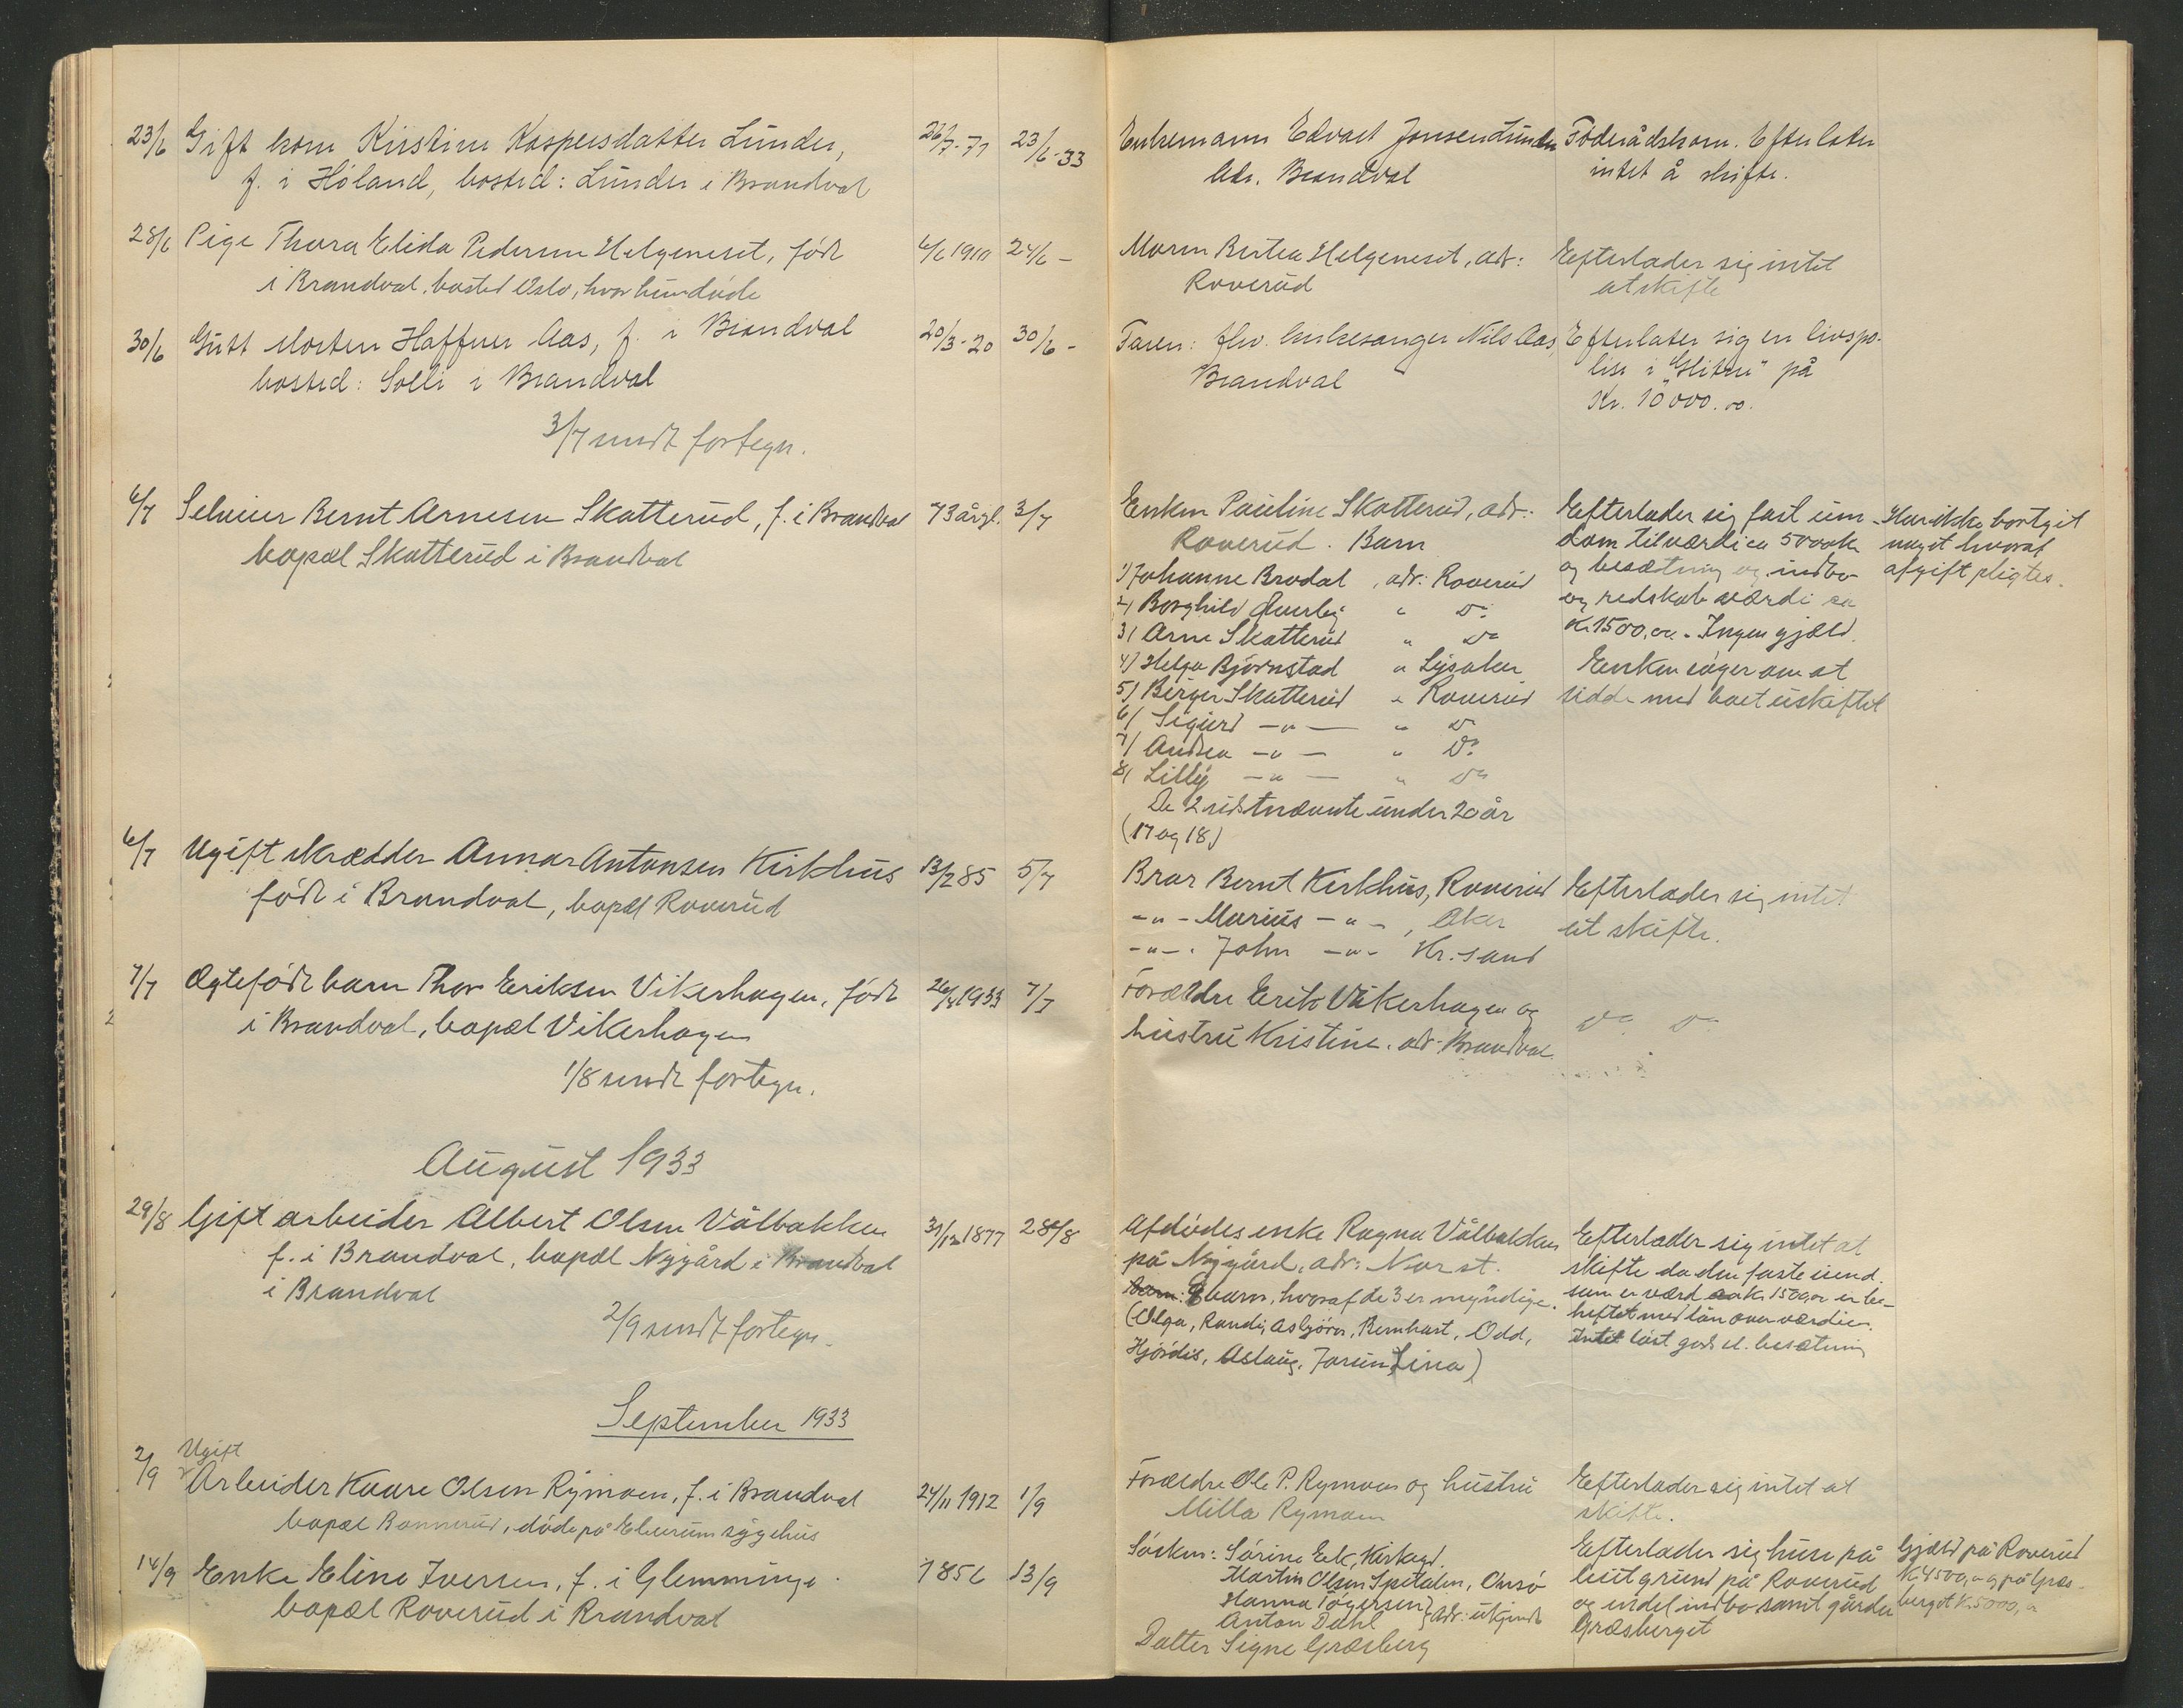 23/6 Gift kone Kirstine Kaspersdatter Lunder, 26/7-71 23/6-33
f. i Høland, bosted: Lunder i Brandval
28/6 Pige Thora Elida Pedersen Helgeneset, født 6/6 1910 24/6 -
i Brandval, bosted Oslo, hvor hun døde
30/6 Gutt Morten Haffner Aas, f. i Brandval 20/3-20 30/6 -
bosted: Solli i Brandval
3/7 sendt fortegn.
6/7 Selveier Bernt Arnesen Skatterud, f. i Brandval 73 år gl. 3/7
bopæl Skatterud i Brandval
6/7 Ugift skrædder Annar Antonsen Kirkhus 13/2 85 5/7
født i Brandval, bopæl Roverud
7/7 Ægtefødt barn Thor Eriksen Vikerhagen, født 26/4 1933 7/7
i Brandval, bopæl Vikerhagen
1/8 sendt fortegn.
August 1933
29/8 Gift arbeider Albert Olsen Vålbakken 31/12 1877 28/8
f. i Brandval, bopæl Nygård i Brandval
i Brandval
2/9 sendt fortegn.
September 1933
Ugift
2/9 Arbeider Kaare Olsen Rymoen, f. i Brandval 24/11 1912 1/9
bopæl Bannerud, døde på Elverum sygehus
14/9 Enke Eline Iversen, f. i Glemminge 1856 13/9
bopæl Roverud i Brandval
Enkemann Edvart Jonsen Lunder
Adr. Brandval
Moren Bertea Helgeneset, adr:
Roverud
Faren: fhv. kirkesanger Nils Aas,
Brandval
Enken Pauline Skatterud, adr:
Roverud. Barn
1) Johanne Brodal, adr: Roverud
2) Borghild Øverby " Do
3) Arne Skatterud " Do
4) Helga Bjørnstad " Lysaker
5) Birger Skatterud " Roverud
6) Sigurd -"- " Do
7) Andrea -"- " Do
8) Lilly -"- " Do
De 2 sidstnævnte under 20 år
(17 og 18)
Bror Bernt Kirkhus, Roverud
-"- Marius -"-, Aker
-"- John -"- Kr.sand
Forældre Erik Vikerhagen og
hustru Kristine. adr: Brandval
Afdødes enke Ragna Vålbakken
på Nygård, adr: Nor st.
Barn: 9 barn, hvoraf de 3 er myndige.
(Olga, Randi, Asbjørn, Bernhart, Odd,
Hjørdis, Aslaug, Jorun, Lina)
Forældre Ole P. Rymoen og hustru
Milla Rymoen
Søsken: Sørine Eek, Kirkegd.
Martin Olsen Spitalen, Onsø
Hanna Tøgersen
Anton Dahl } adr: ukjendt
Datter Signe Græsberg
Føderådskone. Efterlater
intet å skifte.
Efterlader sig intet
at skifte
Efterlater sig en livspo-
lise i "Glitne" på
Kr. 10 000.00.
Efterlader sig fast eien-
dom til værdi ca 5000 kr
og besætning og indbo
og redskab værdi ca
Kr 1500,00. Ingen gjæld.
Enken søger om at
sidde med boet uskiftet
Har ikke bortgit
noget hvoraf
afgift pligtes.
Efterlader sig intet
at skifte.
Do Do
Efterlader sig intet at
skifte da den faste eiend.
som er værd ca Kr. 1500,00 er be-
heftet med lån over værdien.
Intet løst gods el. besætning
Efterlader sig intet at
skifte.
Efterlader sig huse på
leiet grund på Roverud
og endel indbo samt gården
Græsberget
Gjæld på Roverud
Kr 4500,00 og på Græs-
berget Kr 5000,00